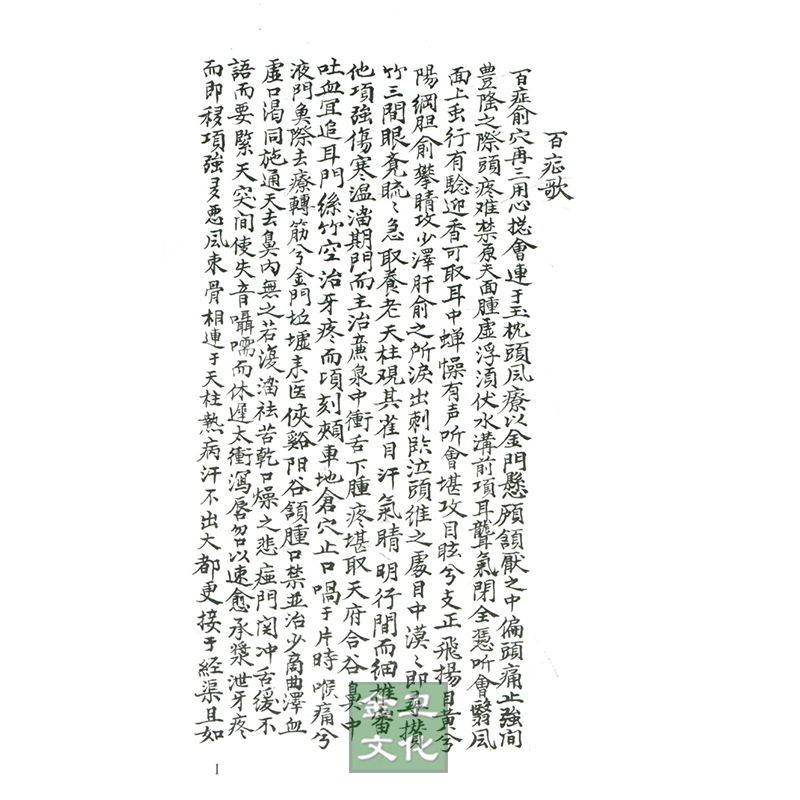 百症歌
百症俞穴再三用心搃會連于玉枕頭風療以金門懸顱頷厭之中偏頭痛止強间
豊隆之際頭疼难禁原夫面腫虛浮須伏水溝前項耳聾氣閉全凴听會翳風
面上虫行有騐迎香可取耳中蟬懆有声听會堪攻目眩兮支正飛揚目黃兮
陽綱胆俞攀睛攻少澤肝俞之所淚出刺臨泣頭維之處目中漠〻即尋攅
竹三間眼竟䀮〻急取養老天柱观其雀目汗氣睛明行間而细推審
他項強傷寒温溜期門而主治廉泉中衝舌下腫疼堪取天府合谷鼻中
吐血宜追耳門絲竹空治牙疼而項刻頰車地倉穴止口喎于片時喉痛兮
液門魚際去療轉筋兮金門坵墟来医俠谿阳谷頷腫口禁並治少商曲澤血
虛口渴同施通天去鼻內無之若復溜祛苦乾口燥之悲瘂門関冲舌緩不
語而要緊天突间使失音囁嚅而休遲太衝瀉唇喎以速愈承漿泄牙疼
而即移項強多悪風束骨相連于天柱熱病汗不出大都更接于経渠且如
1
金巫
文化